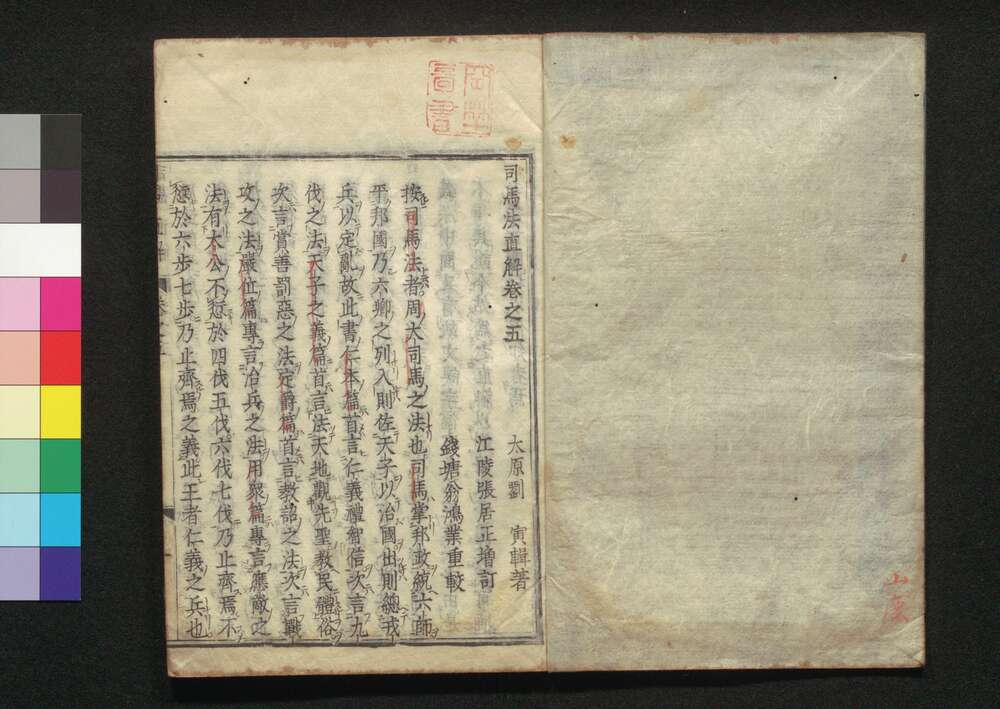 司馬法直解卷之五
太原劉　寅輯著
江陵張居正增訂
錢塘翁鴻業重較
按司馬法者周大司馬之法也司馬掌邦政統六師
平邦國乃六卿之列入則佐天子以治國出則總戎
兵以定亂故此書仁本篇首言仁義禮智信次言九
伐之法天子之義篇首言法天地觀先聖教民體俗
次言賞善罰惡之法定爵篇首言教詔之法次言戰
攻之法嚴位篇專言治兵之法用衆篇專言應敵之
法有太公不愆於四伐五伐六伐七伐乃止齊焉不
愆於六步七步乃止齊焉之義此王者仁義之兵也
圖書